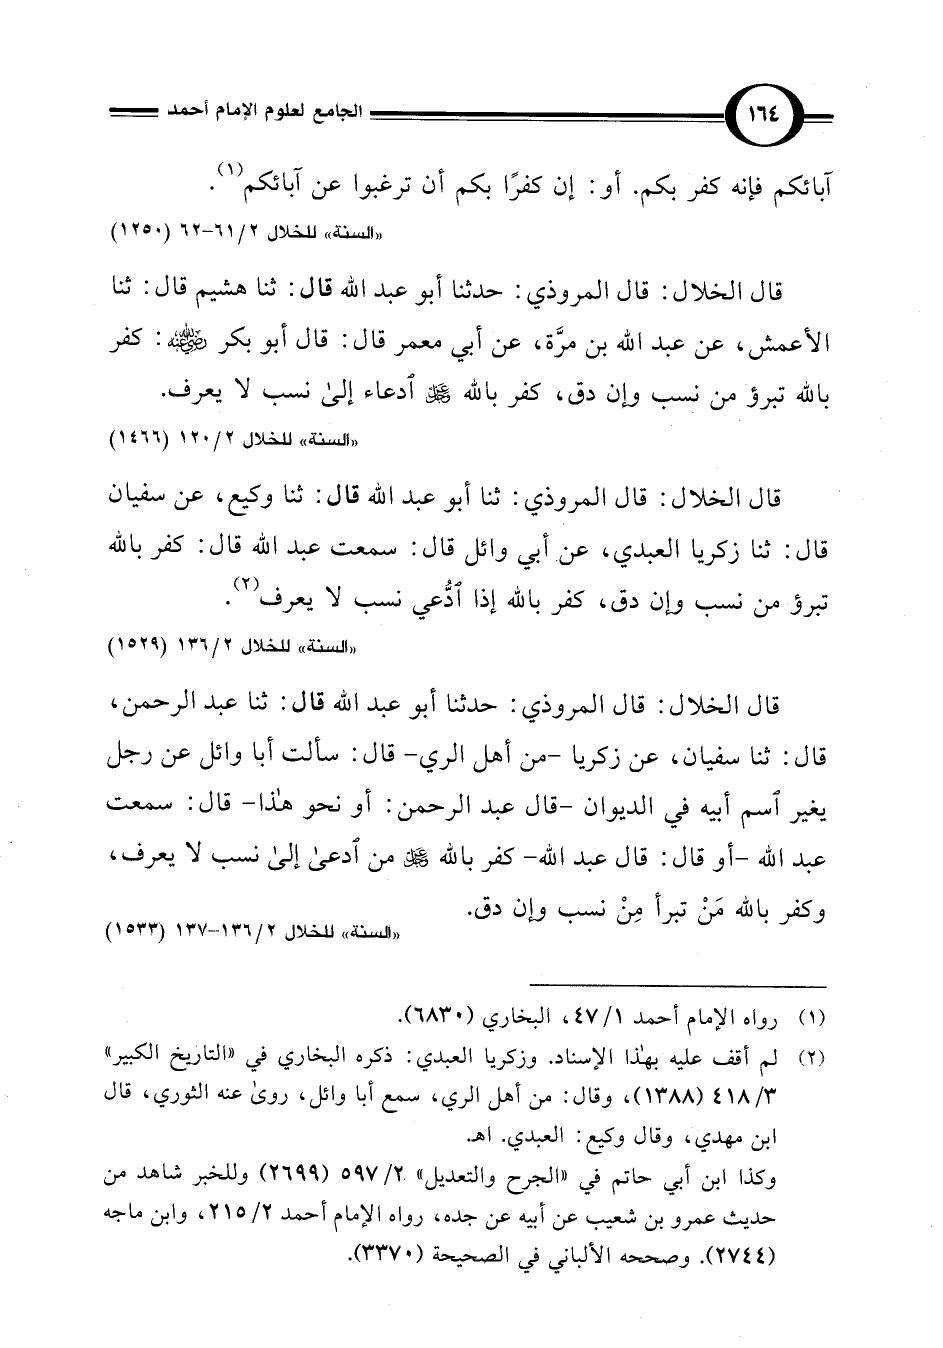 ١٦٤ الجامع لعلوم الإمام أحمد
آبائكم فإنه كفر بكم. أو: إن كفرًا بكم أن ترغبوا عن آبائكم(١).
«السنة» للخلال ٢/ ٦١-٦٢ (١٢٥٠)
قال الخلال: قال المروذي: حدثنا أبو عبد الله قال: ثنا هشيم قال: ثنا
الأعمش، عن عبد الله بن مرَّة، عن أبي معمر قال: قال أبو بكر رضي الله عنه: كفر
بالله تبرؤ من نسب وإن دق، كفر بالله ﷺ ٱدعاء إلىٰ نسب لا يعرف.
«السنة» للخلال ٢/ ١٢٠ (١٤٦٦)
قال الخلال: قال المروذي: ثنا أبو عبد الله قال: ثنا وكيع، عن سفيان
قال: ثنا زكريا العبدي، عن أبي وائل قال: سمعت عبد الله قال: كفر بالله
تبرؤ من نسب وإن دق، كفر بالله إذا ٱدُّعي نسب لا يعرف(٢).
«السنة» للخلال ٢/ ١٣٦ (١٥٢٩)
قال الخلال: قال المروذي: حدثنا أبو عبد الله قال: ثنا عبد الرحمن،
قال: ثنا سفيان، عن زكريا -من أهل الري- قال: سألت أبا وائل عن رجل
يغير ٱسم أبيه في الديوان -قال عبد الرحمن: أو نحو هٰذا- قال: سمعت
عبد الله -أو قال: قال عبد الله- كفر بالله ﷺ من ٱدعىٰ إلىٰ نسب لا يعرف،
وكفر بالله مَنْ تبرأ مِنْ نسب وإن دق.
«السنة» للخلال ٢/ ١٣٦-١٣٧ (١٥٣٣)
(١) رواه الإمام أحمد ١/ ٤٧، البخاري (٦٨٣٠).
(٢) لم أقف عليه بهٰذا الإسناد. وزكريا العبدي: ذكره البخاري في «التاريخ الكبير»
٣/ ٤١٨ (١٣٨٨)، وقال: من أهل الري، سمع أبا وائل، روىٰ عنه الثوري، قال
ابن مهدي، وقال وكيع: العبدي. اهـ.
وكذا ابن أبي حاتم في «الجرح والتعديل» ٢/ ٥٩٧ (٢٦٩٩) وللخبر شاهد من
حديث عمرو بن شعيب عن أبيه عن جده، رواه الإمام أحمد ٢/ ٢١٥، وابن ماجه
(٢٧٤٤). وصححه الألباني في الصحيحة (٣٣٧٠).